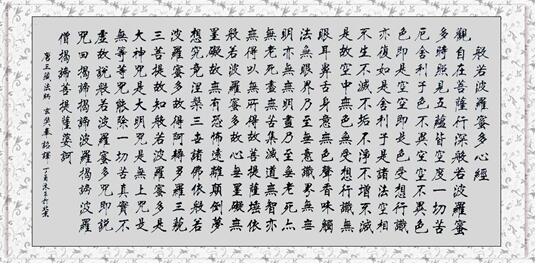 般若波羅蜜多心經
觀自在菩薩行深般若波羅蜜
多時照見五蘊皆空度一切苦
厄舍利子色不異空空不異色
色即是空空即是色受想行識
亦復如是舍利子是諸法空相
不生不滅不垢不淨不增不減
是故空中無色無受想行識無
眼耳鼻舌身意無色聲香味觸
法無眼界乃至無意識界無無
明亦無無明盡乃至無老死亦
無老死盡無苦集滅道無智亦
無得以無所得故菩提薩埵依
般若波羅蜜多故心無罣礙無
罣礙故無有恐怖遠離顛倒夢
想究竟涅槃三世諸佛依般若
波羅蜜多故得阿耨多羅三藐
三菩提故知般若波羅蜜多是
大神咒是大明咒是無上咒是
無等等咒能除一切苦真實不
虛故說般若波羅蜜多咒即說
咒曰揭諦揭諦波羅揭諦波羅
僧揭諦菩提薩婆訶
唐三藏法師玄奘奉詔譯 丁酉